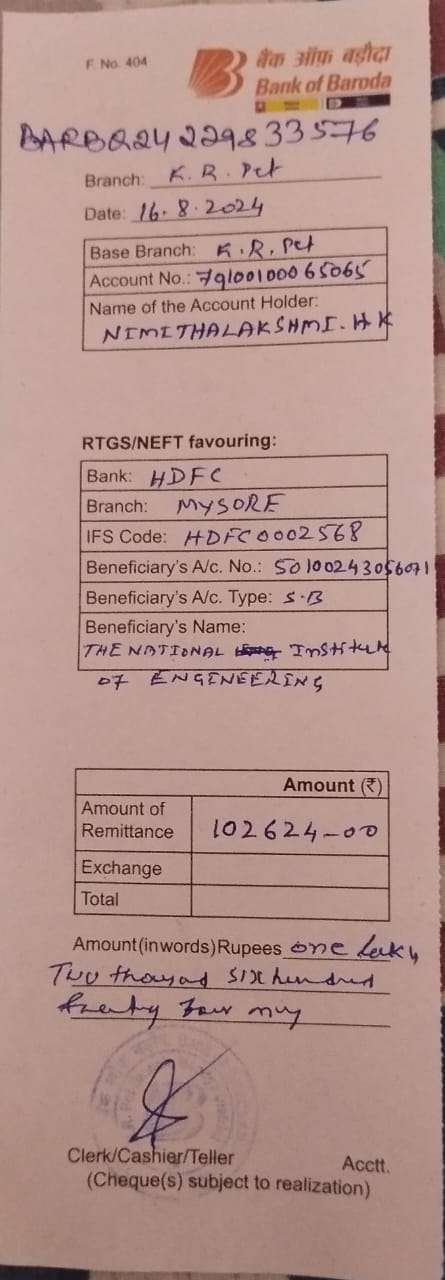 F. No. 404
बैंक ऑफ़ बड़ौदा
Bank of Baroda
BARBQ24229833576
Branch: K. R. Pet
Date: 16.8.2024
Base Branch: K.R. Pet
Account No.: 79100100065065
Name of the Account Holder:
NIMITHALAKSHMI. H K
RTGS/NEFT favouring:
Bank: HDFC
Branch: MYSORE
IFS Code: HDFC0002568
Beneficiary's A/c. No.: 50100243056071
Beneficiary's A/c. Type: S.B
Beneficiary's Name:
THE NATIONAL Institute
OF ENGINEERING
Amount (₹)
Amount of
Remittance 102624-00
Exchange
Total
Amount(inwords)Rupees one Lakh
Two thousand six hundred
twenty four only
Clerk/Cashier/Teller Acctt.
(Cheque(s) subject to realization)